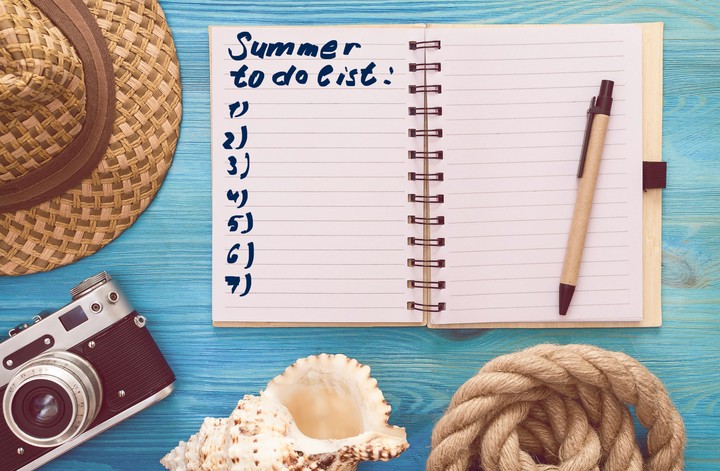 Summer
to do list:
1)
2)
3)
4)
5)
6)
7)